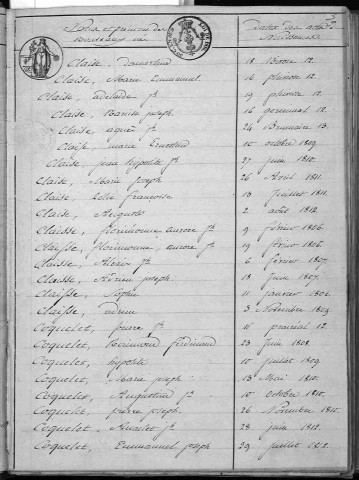 Noms et prénoms des nouveaux nés
Dates des actes de Naissance
Claise, 18 12.
Claise, Marie Emmanuel 16 pluviose 12.
Claise, adelaïde j.h 19 pluviose 12.
Claise, Baptiste joseph. 16 germinal 12.
Claise, agnès j.h 24 Brumaire 13.
Claise, marie Ernestine 10 octobre 1809.
Claise, jean hypolite j.h 27 juin 1810.
Claise, Marie joseph 26 Avril 1811.
Claise, Françoise 13 juillet 1811.
Claise, Auguste 2 août 1812.
Claisse, florimonne aurore j.h 9 février 1806.
Claisse, florimonne, aurore j.h 19 février 1806.
Claisse, Alexis j.h 6 février 1807.
Claisse, Adrien joseph. 18 juin 1807.
Claisse, Sophie 11 janvier 1808.
Claisse, adrien 3 Novembre 1809.
Coquelet, pierre j.h 11 prairial 12.
Coquelet, Raimond ferdinand 23 juin 1808.
Coquelet, hypolite 10 juillet 1809.
Coquelet, Marie joseph. 13 Mai 1810.
Coquelet, Augustin j.h 10 octobre 1810.
Coquelet, pierre joseph. 26 Novembre 1810.
Coquelet, j.h 28 juin 1812.
Coquelet, Emmanuel joseph 29 juillet 1812.